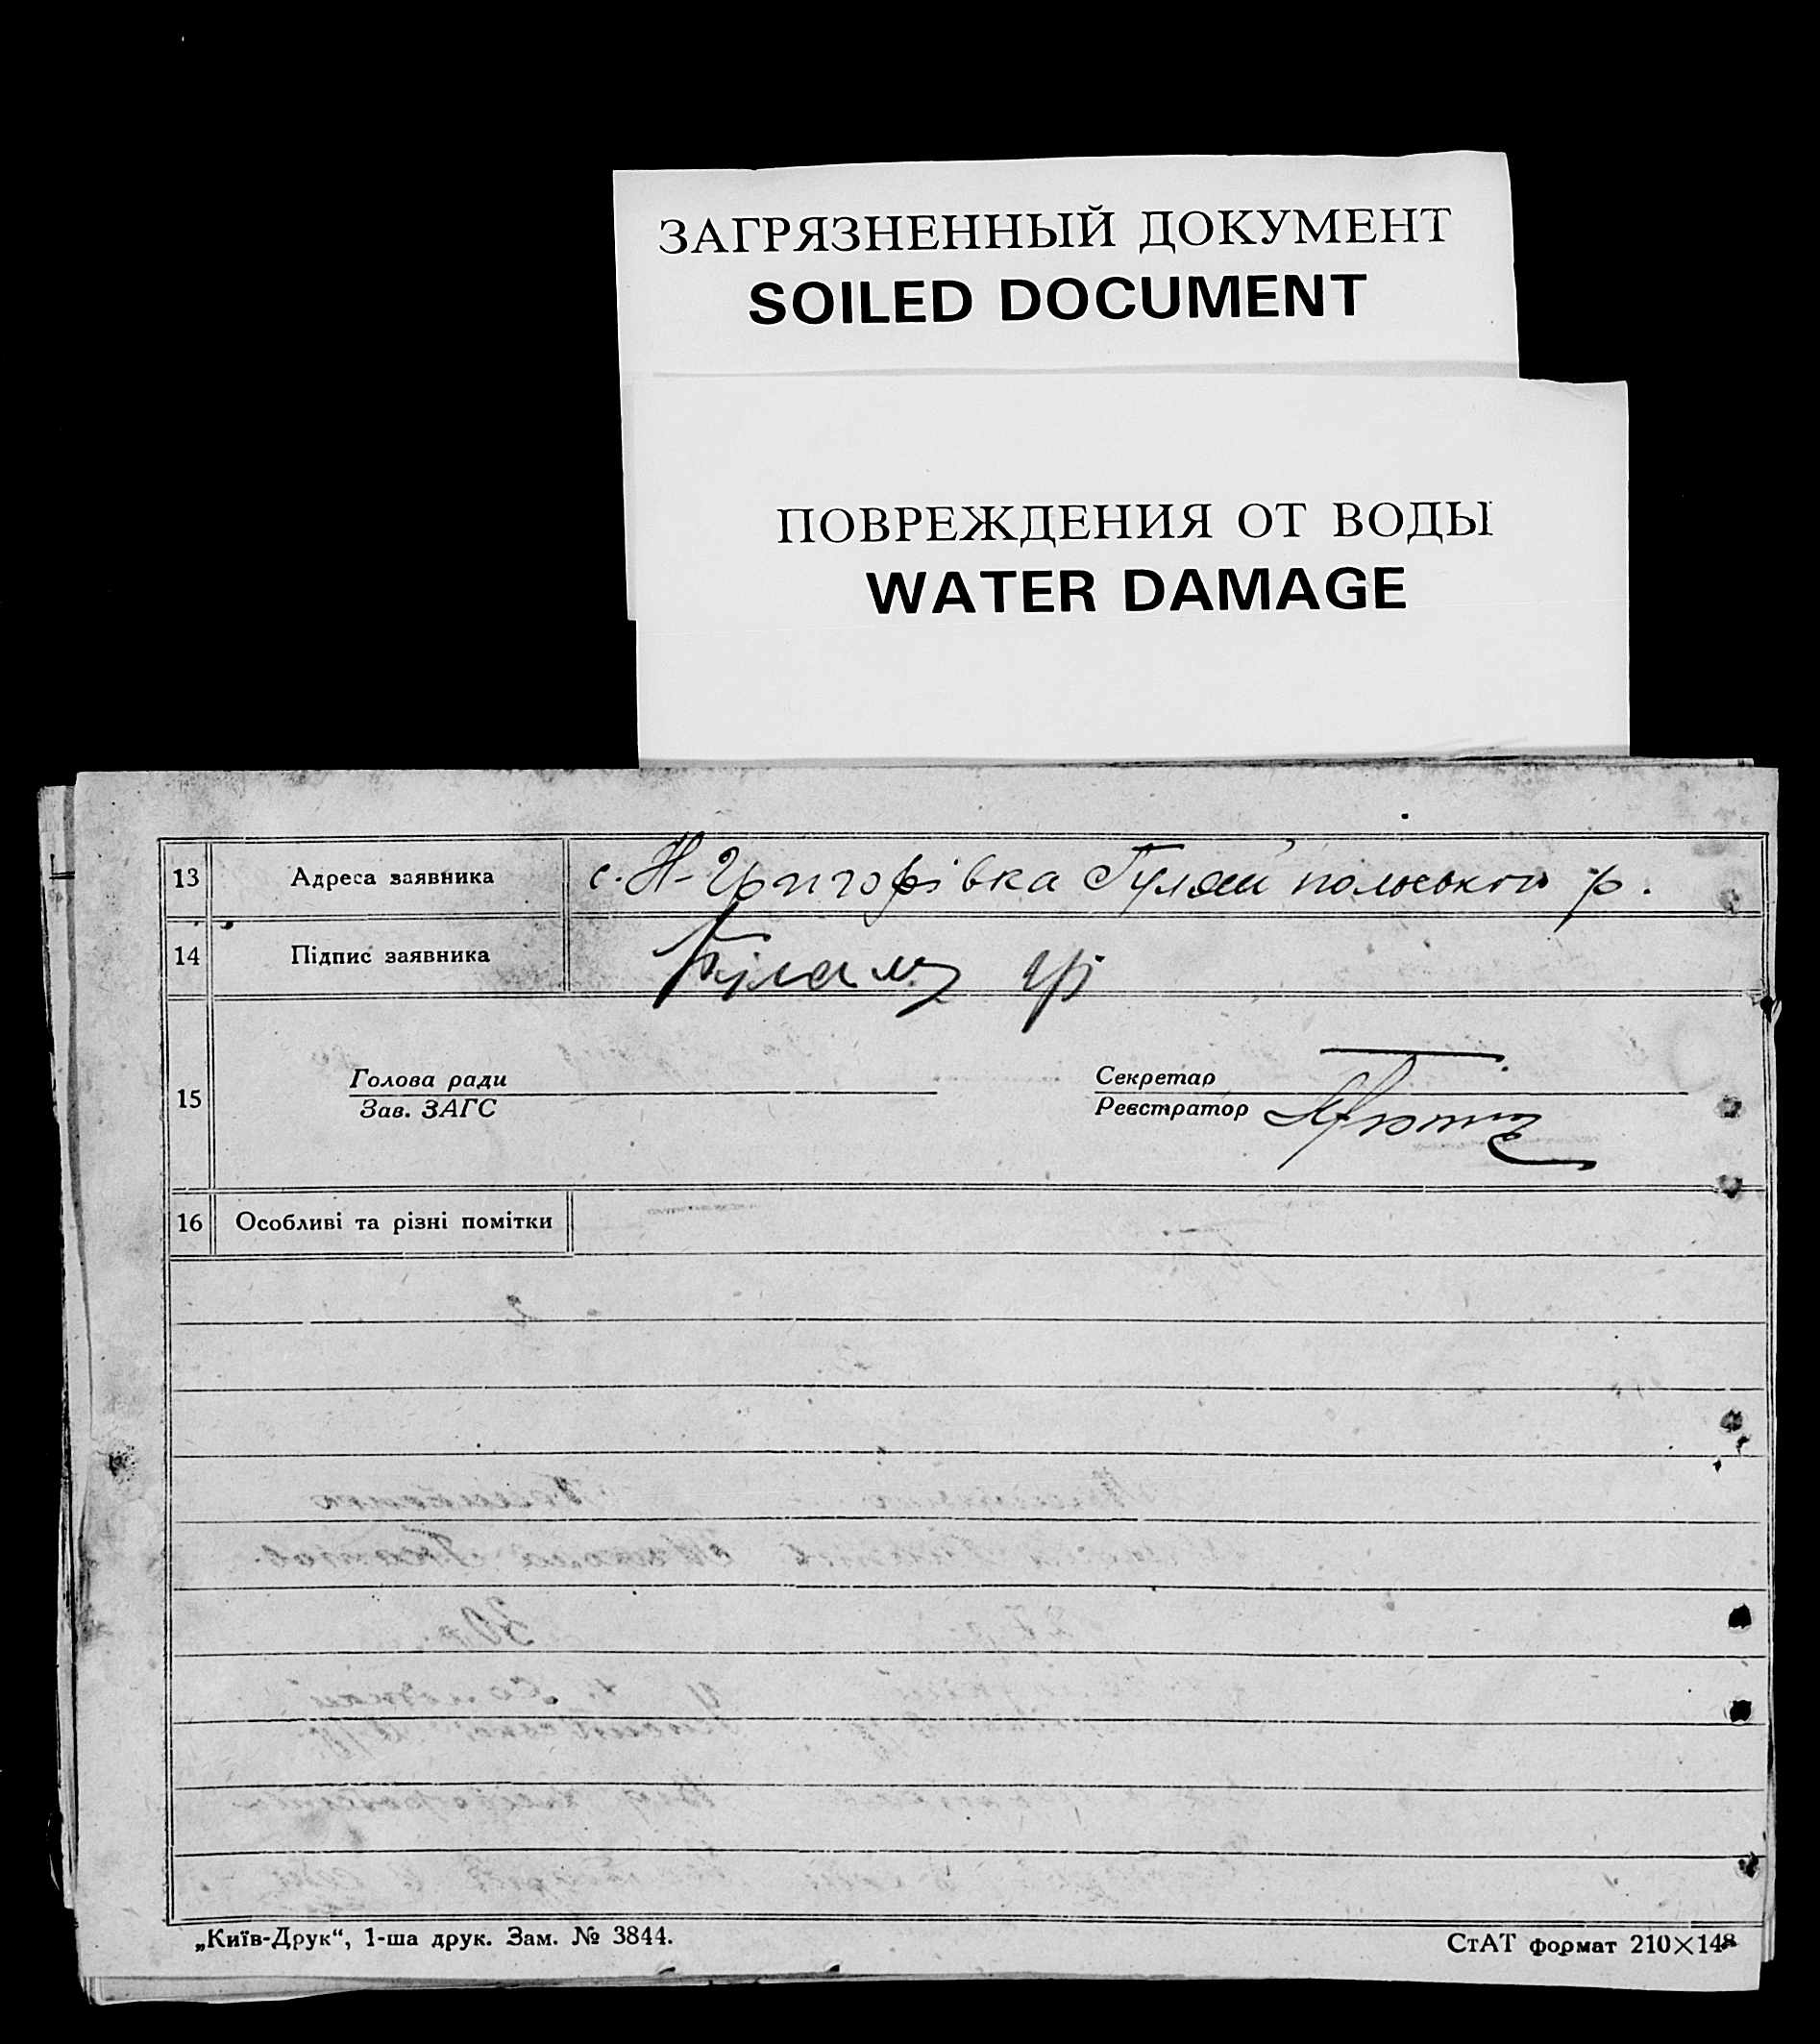 ЗАГРЯЗНЕННЫЙ ДОКУМЕНТ
SOILED DOCUMENT
ПОВРЕЖДЕНИЯ ОТ ВОДЫ
WATER DAMAGE
13 Адреса заявника с. Н-Григорівка Гуляй польського р.
14 Підпис заявника
15 Голова ради
Зав. ЗАГС
Секретар
Реєстратор
16 Особливі та різні помітки
„Київ-Друк“, 1-ша друк. Зам. № 3844.
СтАТ формат 210×148